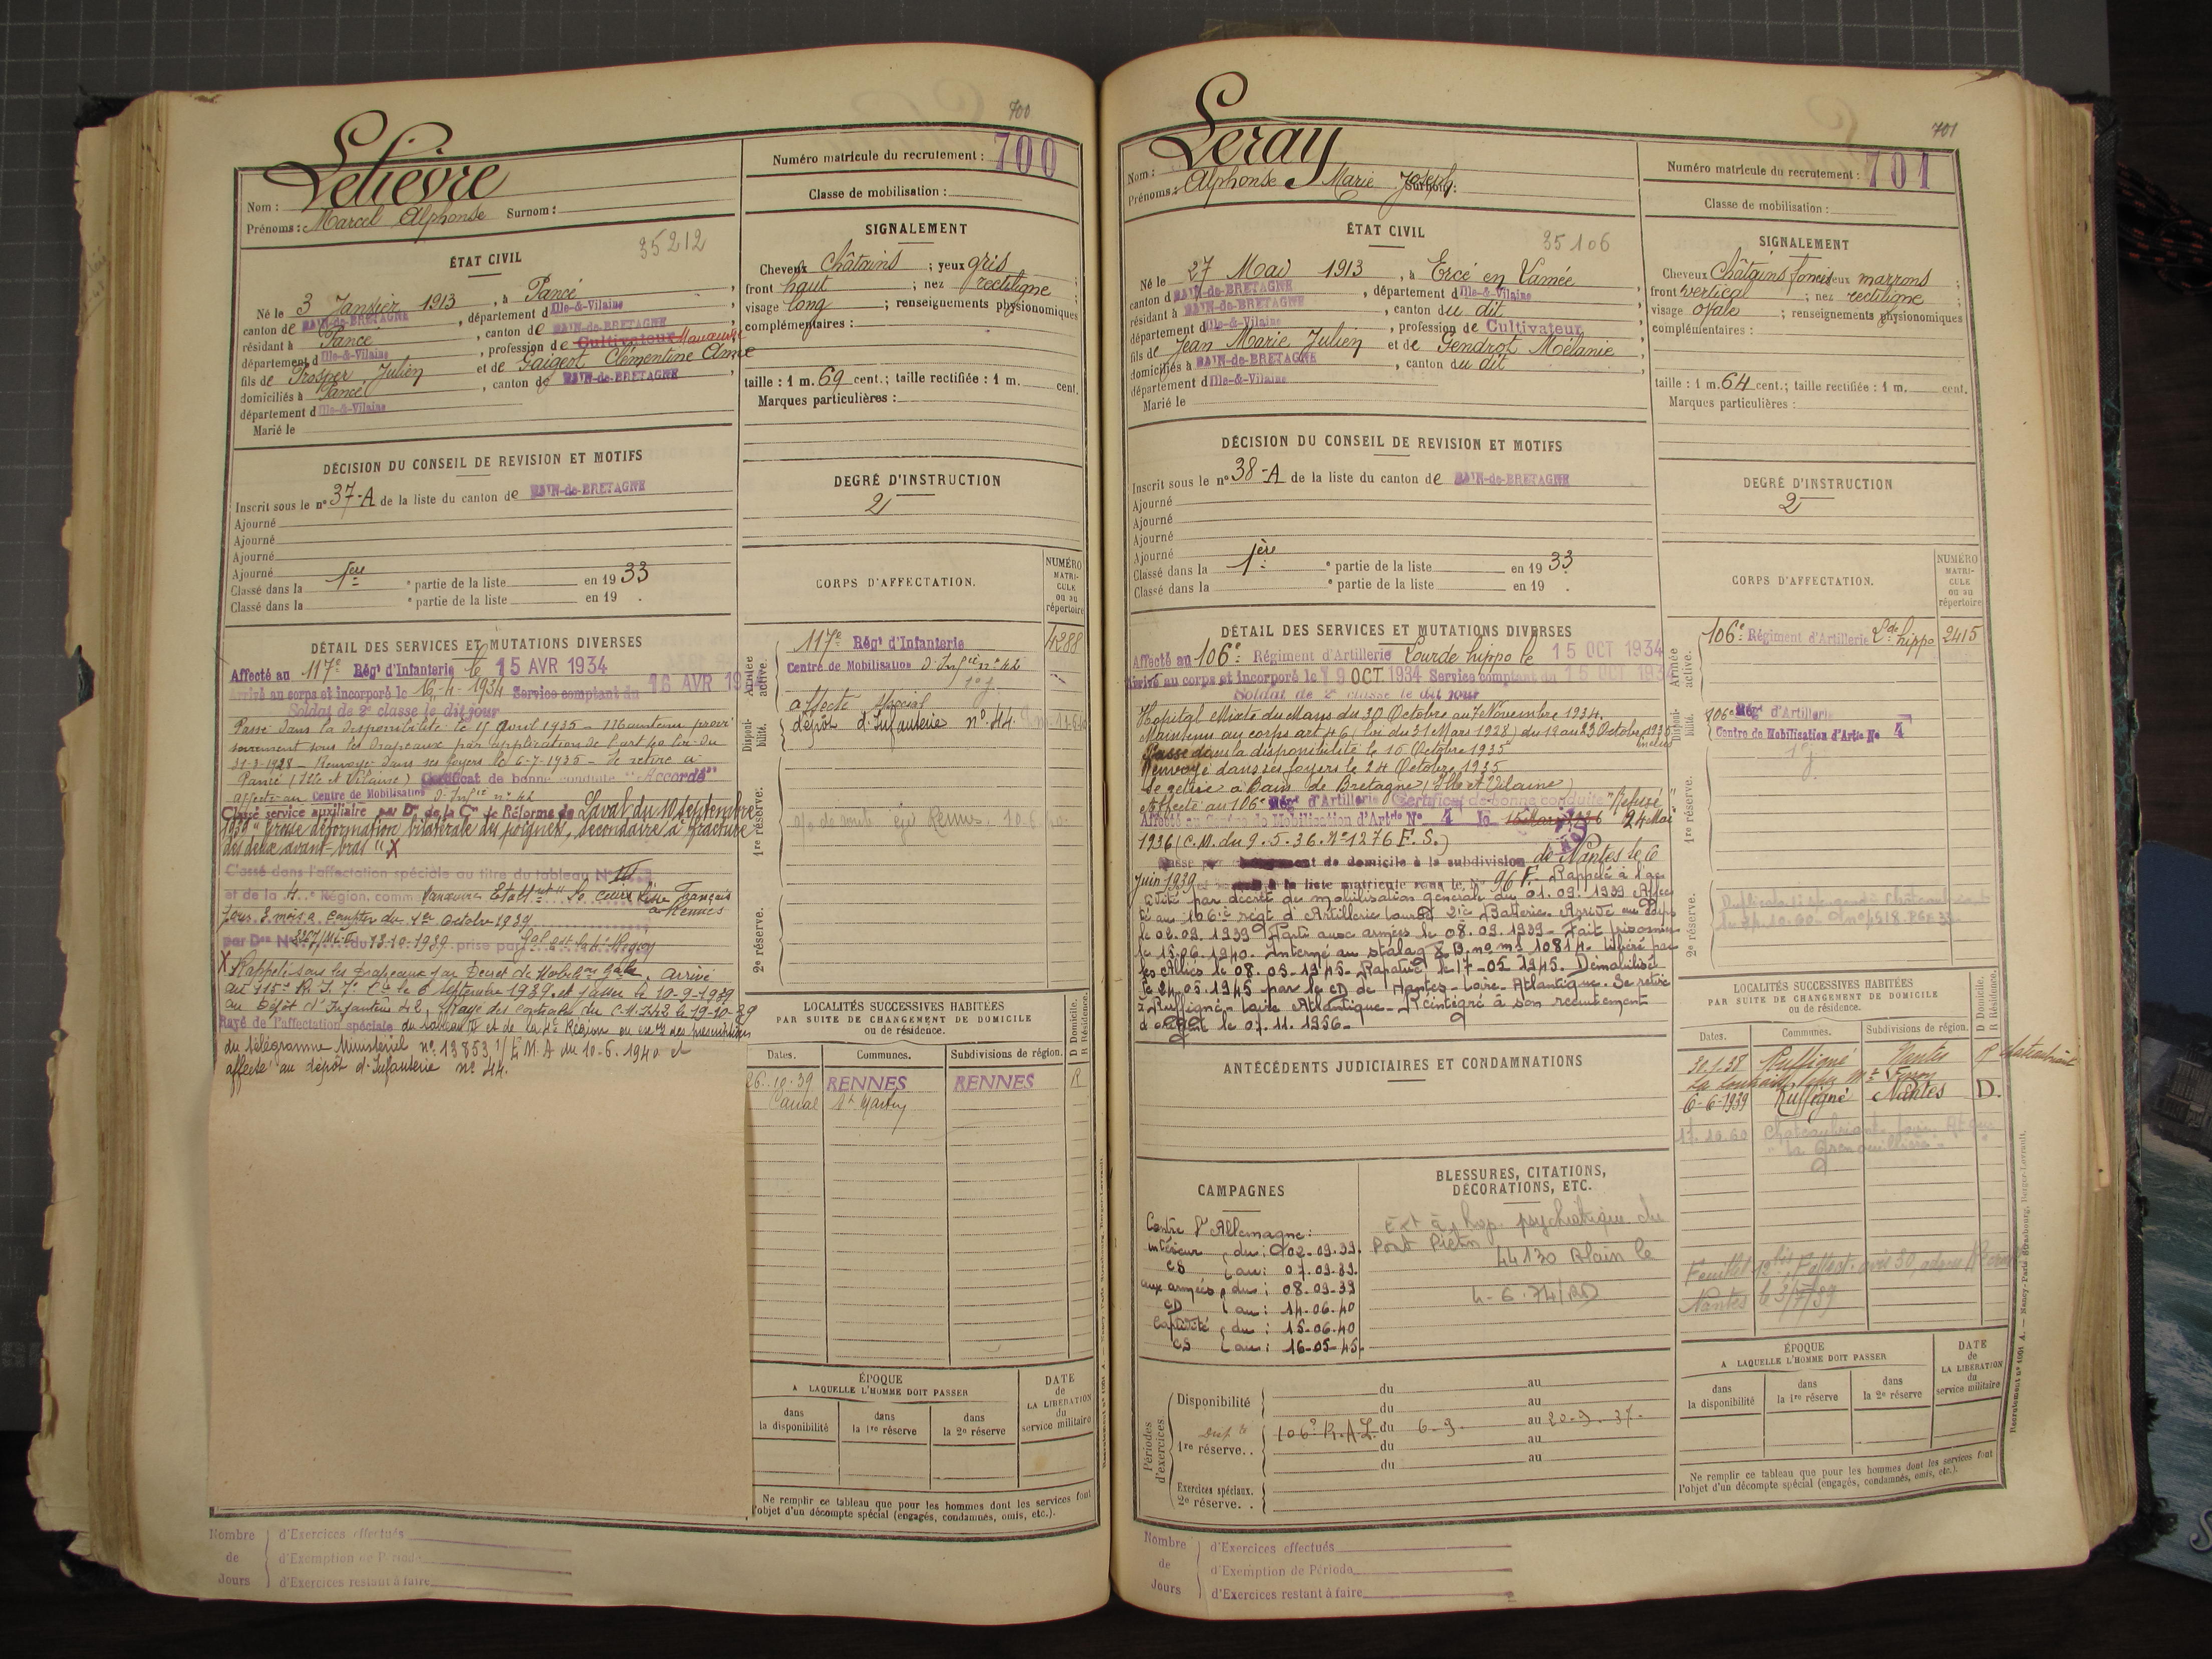 700
Lelièvre
Nom :
Prénoms : Marcel Alphonse Surnom :
Numéro matricule du recrutement : 700
Classe de mobilisation :
ÉTAT CIVIL
35212
Né le 3 Janvier 1913, à Pancé,
canton de BAIN-de-BRETAGNE, département d Ille-&-Vilaine
résidant à Pancé, canton de BAIN-de-BRETAGNE,
département d Ille-&-Vilaine, profession de Cultivateur Manœuvre
fils de Prosper Julien et de Gaigeot Clémentine Anne
domiciliés à Pancé, canton de BAIN-de-BRETAGNE,
département d Ille-&-Vilaine
Marié le
SIGNALEMENT
Cheveux Châtains ; yeux gris ;
front haut ; nez rectiligne ;
visage long ; renseignements physionomiques
complémentaires :
taille : 1 m. 69 cent.; taille rectifiée : 1 m. cent.
Marques particulières :
DÉCISION DU CONSEIL DE REVISION ET MOTIFS
Inscrit sous le n° 37-A de la liste du canton de BAIN-de-BRETAGNE
Ajourné
Ajourné
Ajourné
Ajourné
Classé dans la 1ère e partie de la liste en 1933
Classé dans la e partie de la liste en 19 .
DEGRÉ D'INSTRUCTION
2
CORPS D'AFFECTATION.
NUMÉRO MATRICULE ou au répertoire
Armée active.
117e Régt d'Infanterie 4288
Centre de Mobilisation d'Infie n° 42
affecté spécial
Disponibilité.
dépôt d'Infanterie n° 44
1re réserve.
2e réserve.
DÉTAIL DES SERVICES ET MUTATIONS DIVERSES
Affecté au 117e Régt d'Infanterie le 15 AVR 1934
Arrivé au corps et incorporé le 16-4-1934 Service comptant du 16 AVR 19
Soldat de 2e classe le dit jour
Passé dans la disponibilité le 15 Avril 1935 - Maintenu provi
soirement sous les drapeaux par application de l'art 40 loi du
31-3-1928 - Renvoyé dans ses foyers le 6-7-1935 - Se retire à
Pancé (Ille et Vilaine) Certificat de bonne conduite "Accordé"
affecté au Centre de Mobilisation d'Infie n° 42
Classé service auxiliaire par Don de la Con de Réforme de Laval du 10 septembre
1939 "Grosse déformation bilatérale du poignet, secondaire à fracture
des deux avant-bras" X
Classé dans l'affectation spéciale au titre du tableau N° III
et de la 4e Région, comm Manœuvre Etabt
Français
à Rennes
pour 3 mois à compter du 1er Octobre 1939
du 13-10-1939 prise par
X Rappelé sous les drapeaux par Décret de Mobilon Gale. arrivé
au 115e R. I. 7e Cie le 6 septembre 1939 et passé le 10-9-1939
au Dépôt d'Infanterie 42, Rayé des contrôles du C.M.I.42 le 19-10-39
Rayé de l'affectation spéciale du tableau IV et de la 4e Région en exon des prescriptions
du télégramme Ministériel n° 13853 1/E.M.A du 10-6-1940 et
affecté au dépôt d'Infanterie n° 44.
LOCALITÉS SUCCESSIVES HABITÉES
PAR SUITE DE CHANGEMENT DE DOMICILE
ou de résidence.
D Domicile. R Résidence.
Dates. Communes. Subdivisions de région.
26-10-39 RENNES RENNES R
Canal St Martin
ÉPOQUE
A LAQUELLE L'HOMME DOIT PASSER
DATE de LA LIBÉRATION du service militaire
dans la disponibilité
dans la 1re réserve
dans la 2e réserve
Ne remplir ce tableau que pour les hommes dont les services font
l'objet d'un décompte spécial (engagés, condamnés, omis, etc.).
Nombre de Jours
d'Exercices effectués
d'Exemption de Période
d'Exercices restant à faire
701
Leray
Nom :
Prénoms : Alphonse Marie Joseph Surnom :
Numéro matricule du recrutement : 701
Classe de mobilisation :
ÉTAT CIVIL
35106
Né le 27 Mai 1913, à Ercé en Lamée,
canton d BAIN-de-BRETAGNE, département d Ille-&-Vilaine
résidant à BAIN-de-BRETAGNE, canton du dit,
département d Ille-&-Vilaine, profession de Cultivateur,
fils de Jean Marie Julien et de Gendrot Mélanie,
domiciliés à BAIN-de-BRETAGNE, canton du dit,
département d Ille-&-Vilaine
Marié le
SIGNALEMENT
Cheveux Châtains foncés yeux marrons ;
front vertical ; nez rectiligne ;
visage ovale ; renseignements physionomiques
complémentaires :
taille : 1 m. 64 cent.; taille rectifiée : 1 m. cent.
Marques particulières :
DÉCISION DU CONSEIL DE REVISION ET MOTIFS
Inscrit sous le n° 38-A de la liste du canton de BAIN-de-BRETAGNE
Ajourné
Ajourné
Ajourné
Ajourné
Classé dans la 1ère e partie de la liste en 1933.
Classé dans la e partie de la liste en 19 .
DEGRÉ D'INSTRUCTION
2
CORPS D'AFFECTATION.
NUMÉRO MATRICULE ou au répertoire
Armée active.
106e Régiment d'Artillerie Lde hippo 2415
Disponibilité.
106e Régt d'Artillerie
Centre de Mobilisation d'Artie N° 4
1re réserve.
2e réserve.
DÉTAIL DES SERVICES ET MUTATIONS DIVERSES
Affecté au 106e Régiment d'Artillerie Lourde hippo le 15 OCT 1934
Arrivé au corps et incorporé le 19 OCT 1934 Service comptant du 15 OCT 1934
Soldat de 2e classe le dit jour
Hopital Mixte du Mans du 30 Octobre au 7 Novembre 1934.
Maintenu au corps art 46 (loi du 31 Mars 1928) du 12 au 23 Octobre 1935
inclus
Passé dans la disponibilité le 16 Octobre 1935
Renvoyé dans ses foyers le 24 Octobre 1935
Se retire à Bain de Bretagne (Ille et Vilaine)
Affecté au 106e Régt d'Artillerie Certificat de bonne conduite "Refusé"
Affecté au Centre de Mobilisation d'Artie N° 4 le 24 Mai
1936 (C.M. du 9.5.36. N° 1276 F.S.)
Passé par changement de domicile à la subdivision de Nantes le 6
Juin 1939 à la liste matricule sous le N° 96 F. Rappelé à l'ac
tivité par décret de mobilisation générale du 01.09.1939 Affec
té au 106e régt d'Artillerie lourde 21e Batterie. Arrivé au corps
le 02.09.1939 Parti aux armées le 08.09.1939. Fait prisonnier
le 15.06.1940. Interné au stalag X B. no ms 10814. Libéré par
les Alliés le 08.05.1945. Rapatrié le 17-05 1945. Démobilisé
le 24.05.1945 par le CD de Nantes-Loire-Atlantique. Se retire
à Ruffigné-Loire Atlantique. Réintégré à son recrutement
d'origine le 07.11.1956-
LOCALITÉS SUCCESSIVES HABITÉES
PAR SUITE DE CHANGEMENT DE DOMICILE
ou de résidence.
D Domicile. R Résidence.
Dates. Communes. Subdivisions de région.
Ruffigné Nantes R Chateaubriant
6-6-1939 Ruffigné Nantes D.
17.10.60 Chateaubriant Loire Atque
"la Grenouillère"
Nantes le 3/7/39
ANTÉCÉDENTS JUDICIAIRES ET CONDAMNATIONS
CAMPAGNES
Contre l'Allemagne :
intérieur du : 02.09.39.
CS au : 07.09.39.
aux armées du : 08.09.39
CD au : 14.06.40
Captivité du : 15-06-40
CS au : 16-05-45.
BLESSURES, CITATIONS,
DÉCORATIONS, ETC.
Ext à hop. psychiatrique du
Pont Piétin
44130 Blain le
4-6-74/RD
Périodes d'exercices
Disponibilité du au
du au
1re réserve. . 106e R.A.L. du 6-9- au 20-9-37-
du au
du au
Exercices spéciaux.
2e réserve. .
ÉPOQUE
A LAQUELLE L'HOMME DOIT PASSER
DATE de LA LIBÉRATION du service militaire
dans la disponibilité
dans la 1re réserve
dans la 2e réserve
Ne remplir ce tableau que pour les hommes dont les services font
l'objet d'un décompte spécial (engagés, condamnés, omis, etc.).
Nombre de Jours
d'Exercices effectués
d'Exemption de Période
d'Exercices restant à faire